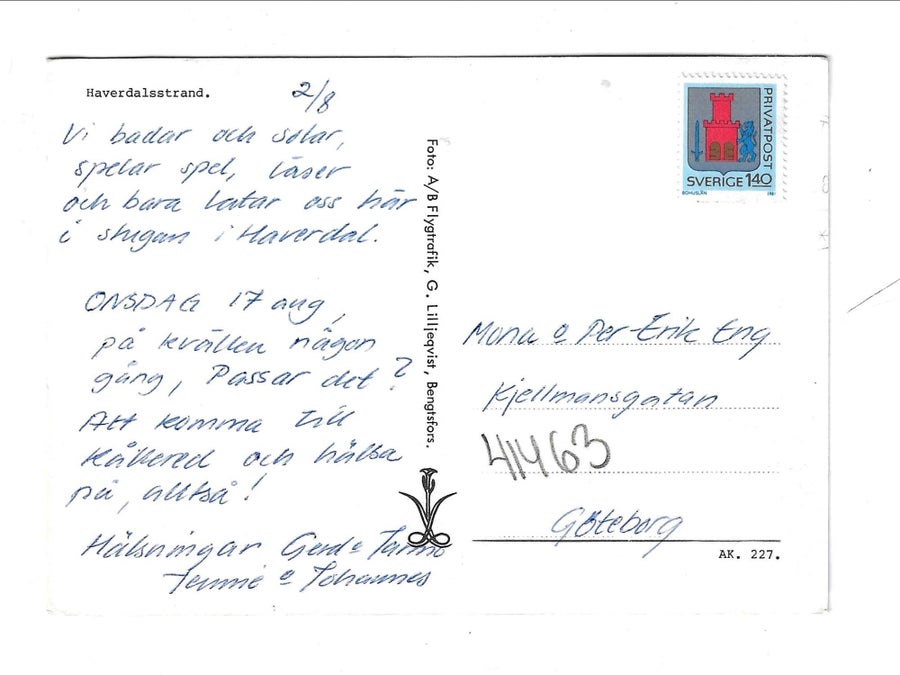 Haverdalsstrand.
2/8
Vi badar och solar,
spelar spel, läser
och bara latar oss här
i stugan i Haverdal.
ONSDAG 17 aug,
på kvällen någon
gång, Passar det?
Att komma till
Kållered och hälsa
på, alltså!
Hälsningar Gerd o Tarmo
Jennie o Johannes
Foto: A/B Flygtrafik, G. Lilljeqvist, Bengtsfors.
PRIVATPOST
SVERIGE 140
BOHUSLÄN 1981
Mona o Per-Erik Eng
Kjellmansgatan
41463
Göteborg
AK. 227.